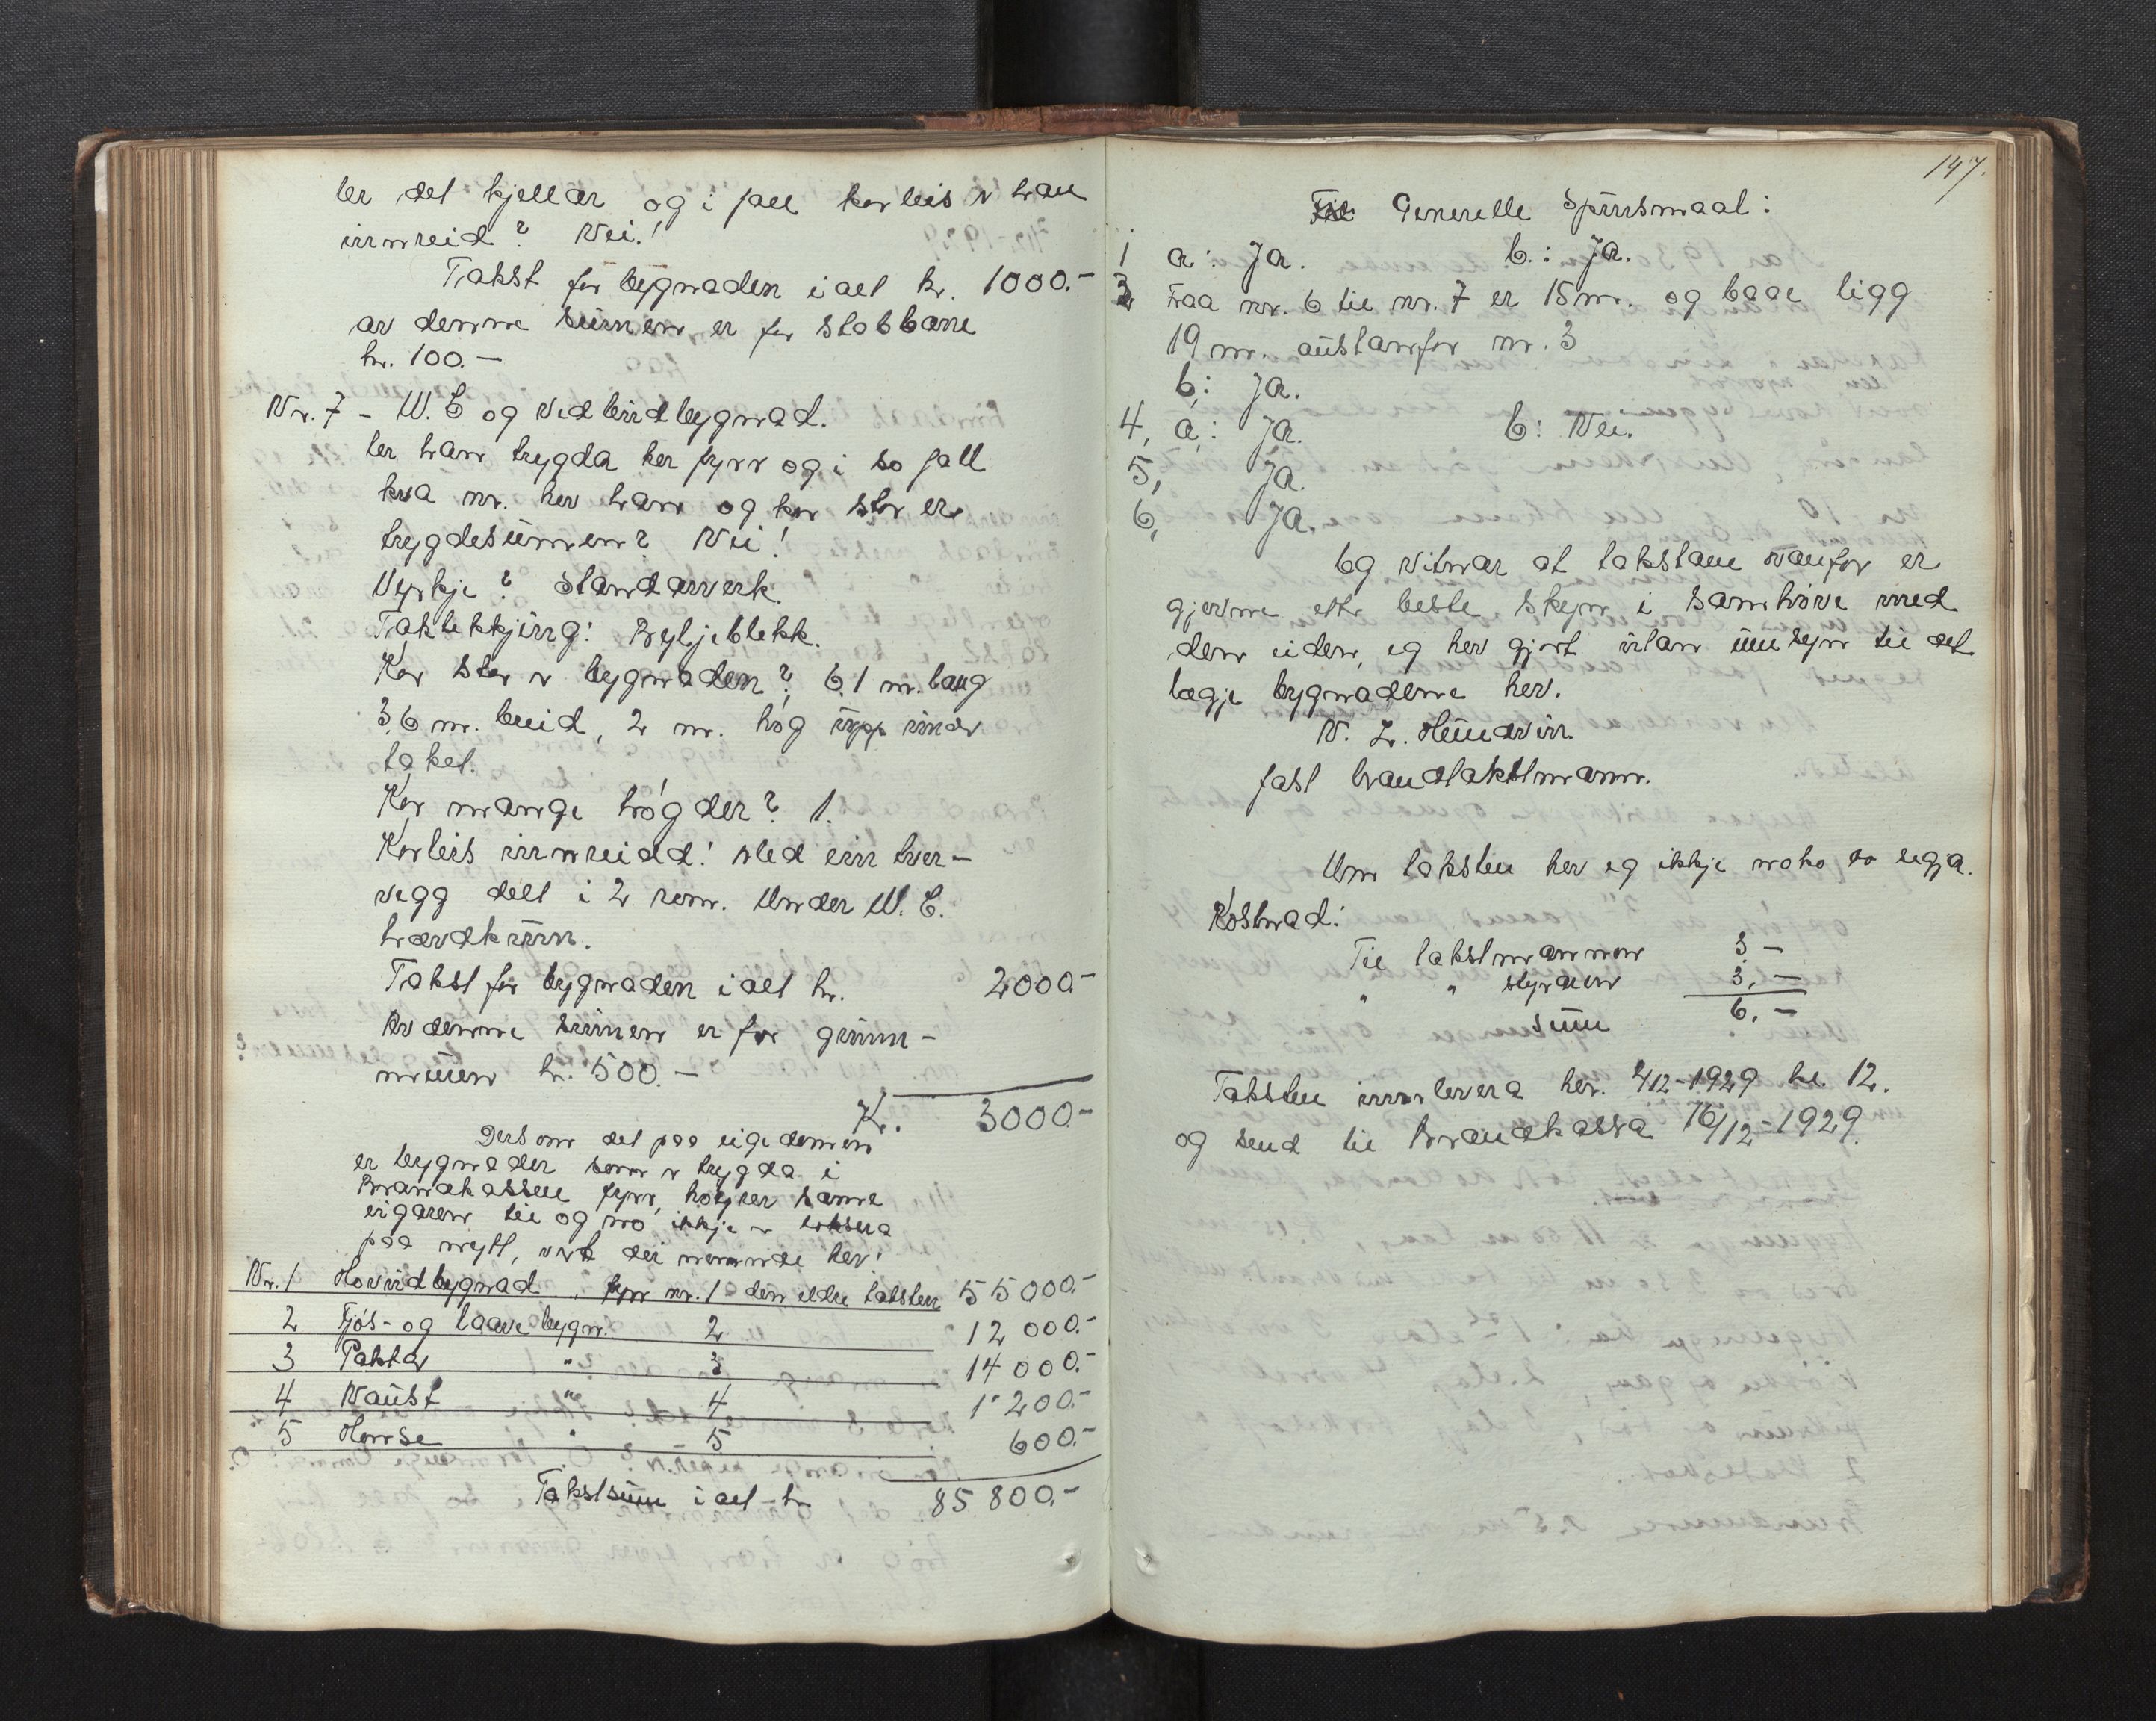 Er det kjellar og i fall korleis er han
innreid? Nei!
Takst for bygnaden i alt kr. 1000.-
av denne summen er for stabbane
kr. 100.-
Nr. 7 - W.C og vedbudbygnad.
Er han trygda her fyrr og i so fall
kva nr. hev han og kor stor er
trygdesummen? Nei!
Vyrkje? Standarverk.
Taktekkjing! Bylgjeblekk.
Kor stor er bygnaden? 6,1 m. lang
3,6 m. breid, 2 m. høg upp under
taket.
Kor mange høgder? 1.
Korleis innreidd! Med ein tver-
vegg delt i 2 rom. Under W.C.
Takst for bygnaden i alt kr. 2000.-
Av denne summen er for grunn-
muren kr. 500.-
Kr. 3000.-
Dersom det paa eigedomen
er bygnader som er trygda i
Brandkassen fyrr, høyrer same
eigaren til og no ikkje er taksera
paa nytt, vert dei nemnde her!
Nr. 1 Hovudbygnad, fyrr nr. 1 den eldre taksten 55000.-
2 Fjøs- og laavebygn. 2 12 000.-
3 Paktar " 3 14 000.-
4 Naust " 4 1200.-
5 Hønse " 5 600.-
Takstsum i alt - kr 85 800.-
147.
Generelle Spursmaal:
1 a: Ja. b.: Ja.
3 Fraa nr. 6 til nr. 7 er 15 m. og baae ligg
19 m. austanfor nr. 3
b: Ja.
4, a,: Ja. b: Nei.
5, Ja.
6, Ja.
Eg vitnar at takstane ovanfor er
gjevne etter beste skyn i samhøve med
den eiden, eg hev gjort utan umsyn til det
lægje bygnadene hev.
N. L.
fast brandtakstmann.
Um taksten hev eg ikkje noko so segja.
Kostnad:
Til takstmannen 3.-
" " styraren 3,-
Sum 6,-
Taksten innlevera her. 4/12-1929 kl 12.
og send til Brandkassa 16/12-1929.